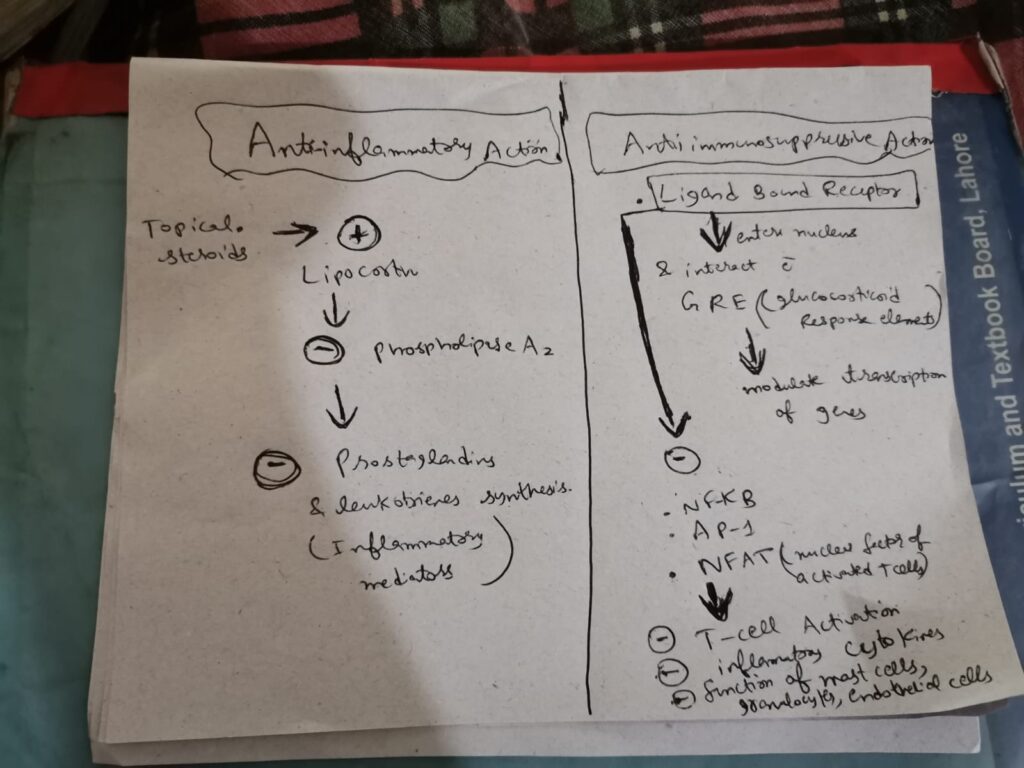 Anti-inflammatory Action
Topical
steroids
+
Lipocortin
- Phospholipase A2
- Prostaglandins
& leukotrienes synthesis.
(Inflammatory
mediators)
Anti immunosuppressive Action
. Ligand Bound Receptor
enters nucleus
& interact c̄
GRE (glucocorticoid
Response elements)
modulate transcription
of genes
-
. NF-KB
. AP-1
. NFAT (nuclear factor of
activated T cells)
- T-cell Activation
- inflammatory cytokines
- function of mast cells,
granulocytes, endothelial cells
iculum and Textbook Board, Lahore